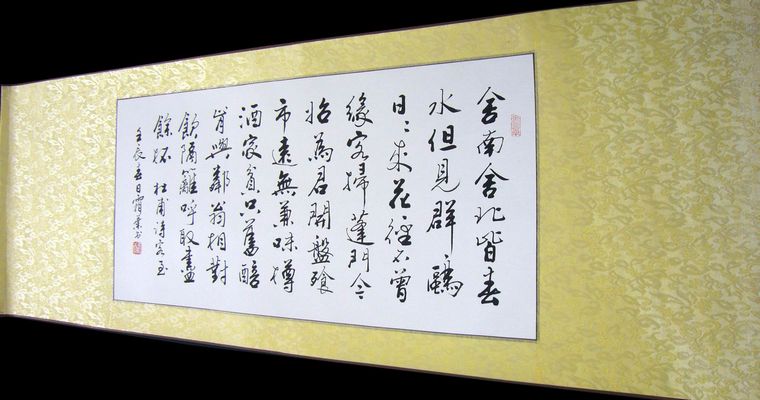 舍南舍北皆春
水但見群鷗
日〻來花徑不曾
緣客掃蓬門今
始為君開盤飧
市遠無兼味樽
酒家貧只舊醅
肯與鄰翁相對
飲隔籬呼取盡
餘杯 杜甫詩客至
壬辰春日書